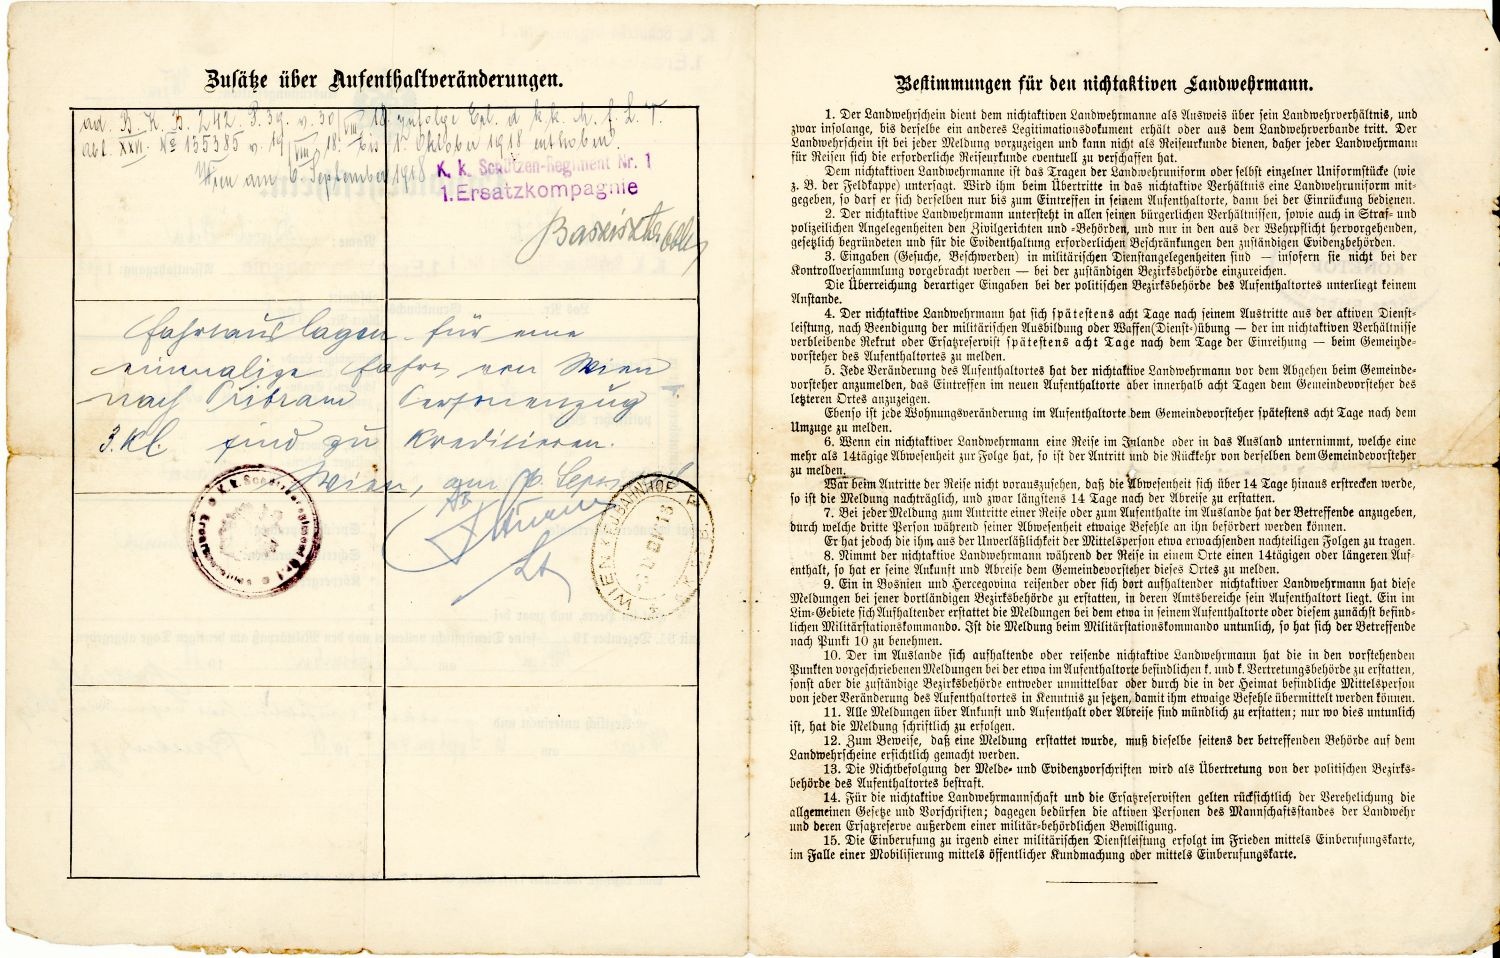 Zusätze über Aufenthaltveränderungen.
ad. B. K. B. 242. P. 39. v. 30/VIII 18. zufolge Erl. d. k. k. M. f. L. V.
abt. XXVI. No 155385 v. 19/VIII 18. bis 1. Oktober 1918 enthoben.
Wien am 6. September 1918
K. k. Schützen-Regiment Nr. 1
1. Ersatzkompagnie
Fahrtauslagen für eine
einmalige Fahrt von Wien
nach Pribram Personenzug
3. Kl. sind zu kreditieren.
Wien, am Sept.
WIEN K.F.J. BAHNHOF
Bestimmungen für den nichtaktiven Landwehrmann.
1. Der Landwehrschein dient dem nichtaktiven Landwehrmanne als Ausweis über sein Landwehrverhältnis, und
zwar insolange, bis derselbe ein anderes Legitimationsdokument erhält oder aus dem Landwehrverbande tritt. Der
Landwehrschein ist bei jeder Meldung vorzuzeigen und kann nicht als Reiseurkunde dienen, daher jeder Landwehrmann
für Reisen sich die erforderliche Reiseurkunde eventuell zu verschaffen hat.
Dem nichtaktiven Landwehrmanne ist das Tragen der Landwehruniform oder selbst einzelner Uniformstücke (wie
z. B. der Feldkappe) untersagt. Wird ihm beim Übertritte in das nichtaktive Verhältnis eine Landwehruniform mit-
gegeben, so darf er sich derselben nur bis zum Eintreffen in seinem Aufenthaltorte, dann bei der Einrückung bedienen.
2. Der nichtaktive Landwehrmann untersteht in allen seinen bürgerlichen Verhältnissen, sowie auch in Straf- und
polizeilichen Angelegenheiten den Zivilgerichten und -Behörden, und nur in den aus der Wehrpflicht hervorgehenden,
gesetzlich begründeten und für die Evidenthaltung erforderlichen Beschränkungen den zuständigen Evidenzbehörden.
3. Eingaben (Gesuche, Beschwerden) in militärischen Dienstangelegenheiten sind — insofern sie nicht bei der
Kontrollversammlung vorgebracht werden — bei der zuständigen Bezirksbehörde einzureichen.
Die Überreichung derartiger Eingaben bei der politischen Bezirksbehörde des Aufenthaltortes unterliegt keinem
Anstande.
4. Der nichtaktive Landwehrmann hat sich spätestens acht Tage nach seinem Austritte aus der aktiven Dienst-
leistung, nach Beendigung der militärischen Ausbildung oder Waffen(Dienst-)übung — der im nichtaktiven Verhältnisse
verbleibende Rekrut oder Ersatzreservist spätestens acht Tage nach dem Tage der Einreihung — beim Gemeinde-
vorsteher des Aufenthaltortes zu melden.
5. Jede Veränderung des Aufenthaltortes hat der nichtaktive Landwehrmann vor dem Abgehen beim Gemeinde-
vorsteher anzumelden, das Eintreffen im neuen Aufenthaltorte aber innerhalb acht Tagen dem Gemeindevorsteher des
letzteren Ortes anzuzeigen.
Ebenso ist jede Wohnungsveränderung im Aufenthaltorte dem Gemeindevorsteher spätestens acht Tage nach dem
Umzuge zu melden.
6. Wenn ein nichtaktiver Landwehrmann eine Reise im Inlande oder in das Ausland unternimmt, welche eine
mehr als 14tägige Abwesenheit zur Folge hat, so ist der Antritt und die Rückkehr von derselben dem Gemeindevorsteher
zu melden.
War beim Antritte der Reise nicht vorauszusehen, daß die Abwesenheit sich über 14 Tage hinaus erstrecken werde,
so ist die Meldung nachträglich, und zwar längstens 14 Tage nach der Abreise zu erstatten.
7. Bei jeder Meldung zum Antritte einer Reise oder zum Aufenthalte im Auslande hat der Betreffende anzugeben,
durch welche dritte Person während seiner Abwesenheit etwaige Befehle an ihn befördert werden können.
Er hat jedoch die ihm aus der Unverläßlichkeit der Mittelsperson etwa erwachsenden nachteiligen Folgen zu tragen.
8. Nimmt der nichtaktive Landwehrmann während der Reise in einem Orte einen 14tägigen oder längeren Auf-
enthalt, so hat er seine Ankunft und Abreise dem Gemeindevorsteher dieses Ortes zu melden.
9. Ein in Bosnien und Hercegovina reisender oder sich dort aufhaltender nichtaktiver Landwehrmann hat diese
Meldungen bei jener dortländigen Bezirksbehörde zu erstatten, in deren Amtsbereiche sein Aufenthaltort liegt. Ein im
Lim-Gebiete sich Aufhaltender erstattet die Meldungen bei dem etwa in seinem Aufenthaltorte oder diesem zunächst befind-
lichen Militärstationskommando. Ist die Meldung beim Militärstationskommando untunlich, so hat sich der Betreffende
nach Punkt 10 zu benehmen.
10. Der im Auslande sich aufhaltende oder reisende nichtaktive Landwehrmann hat die in den vorstehenden
Punkten vorgeschriebenen Meldungen bei der etwa im Aufenthaltorte befindlichen k. und k. Vertretungsbehörde zu erstatten,
sonst aber die zuständige Bezirksbehörde entweder unmittelbar oder durch die in der Heimat befindliche Mittelsperson
von jeder Veränderung des Aufenthaltortes in Kenntnis zu setzen, damit ihm etwaige Befehle übermittelt werden können.
11. Alle Meldungen über Ankunft und Aufenthalt oder Abreise sind mündlich zu erstatten; nur wo dies untunlich
ist, hat die Meldung schriftlich zu erfolgen.
12. Zum Beweise, daß eine Meldung erstattet wurde, muß dieselbe seitens der betreffenden Behörde auf dem
Landwehrscheine ersichtlich gemacht werden.
13. Die Nichtbefolgung der Melde- und Evidenzvorschriften wird als Übertretung von der politischen Bezirks-
behörde des Aufenthaltortes bestraft.
14. Für die nichtaktive Landwehrmannschaft und die Ersatzreservisten gelten rücksichtlich der Verehelichung die
allgemeinen Gesetze und Vorschriften; dagegen bedürfen die aktiven Personen des Mannschaftsstandes der Landwehr
und deren Ersatzreserve außerdem einer militär-behördlichen Bewilligung.
15. Die Einberufung zu irgend einer militärischen Dienstleistung erfolgt im Frieden mittels Einberufungskarte,
im Falle einer Mobilisierung mittels öffentlicher Kundmachung oder mittels Einberufungskarte.